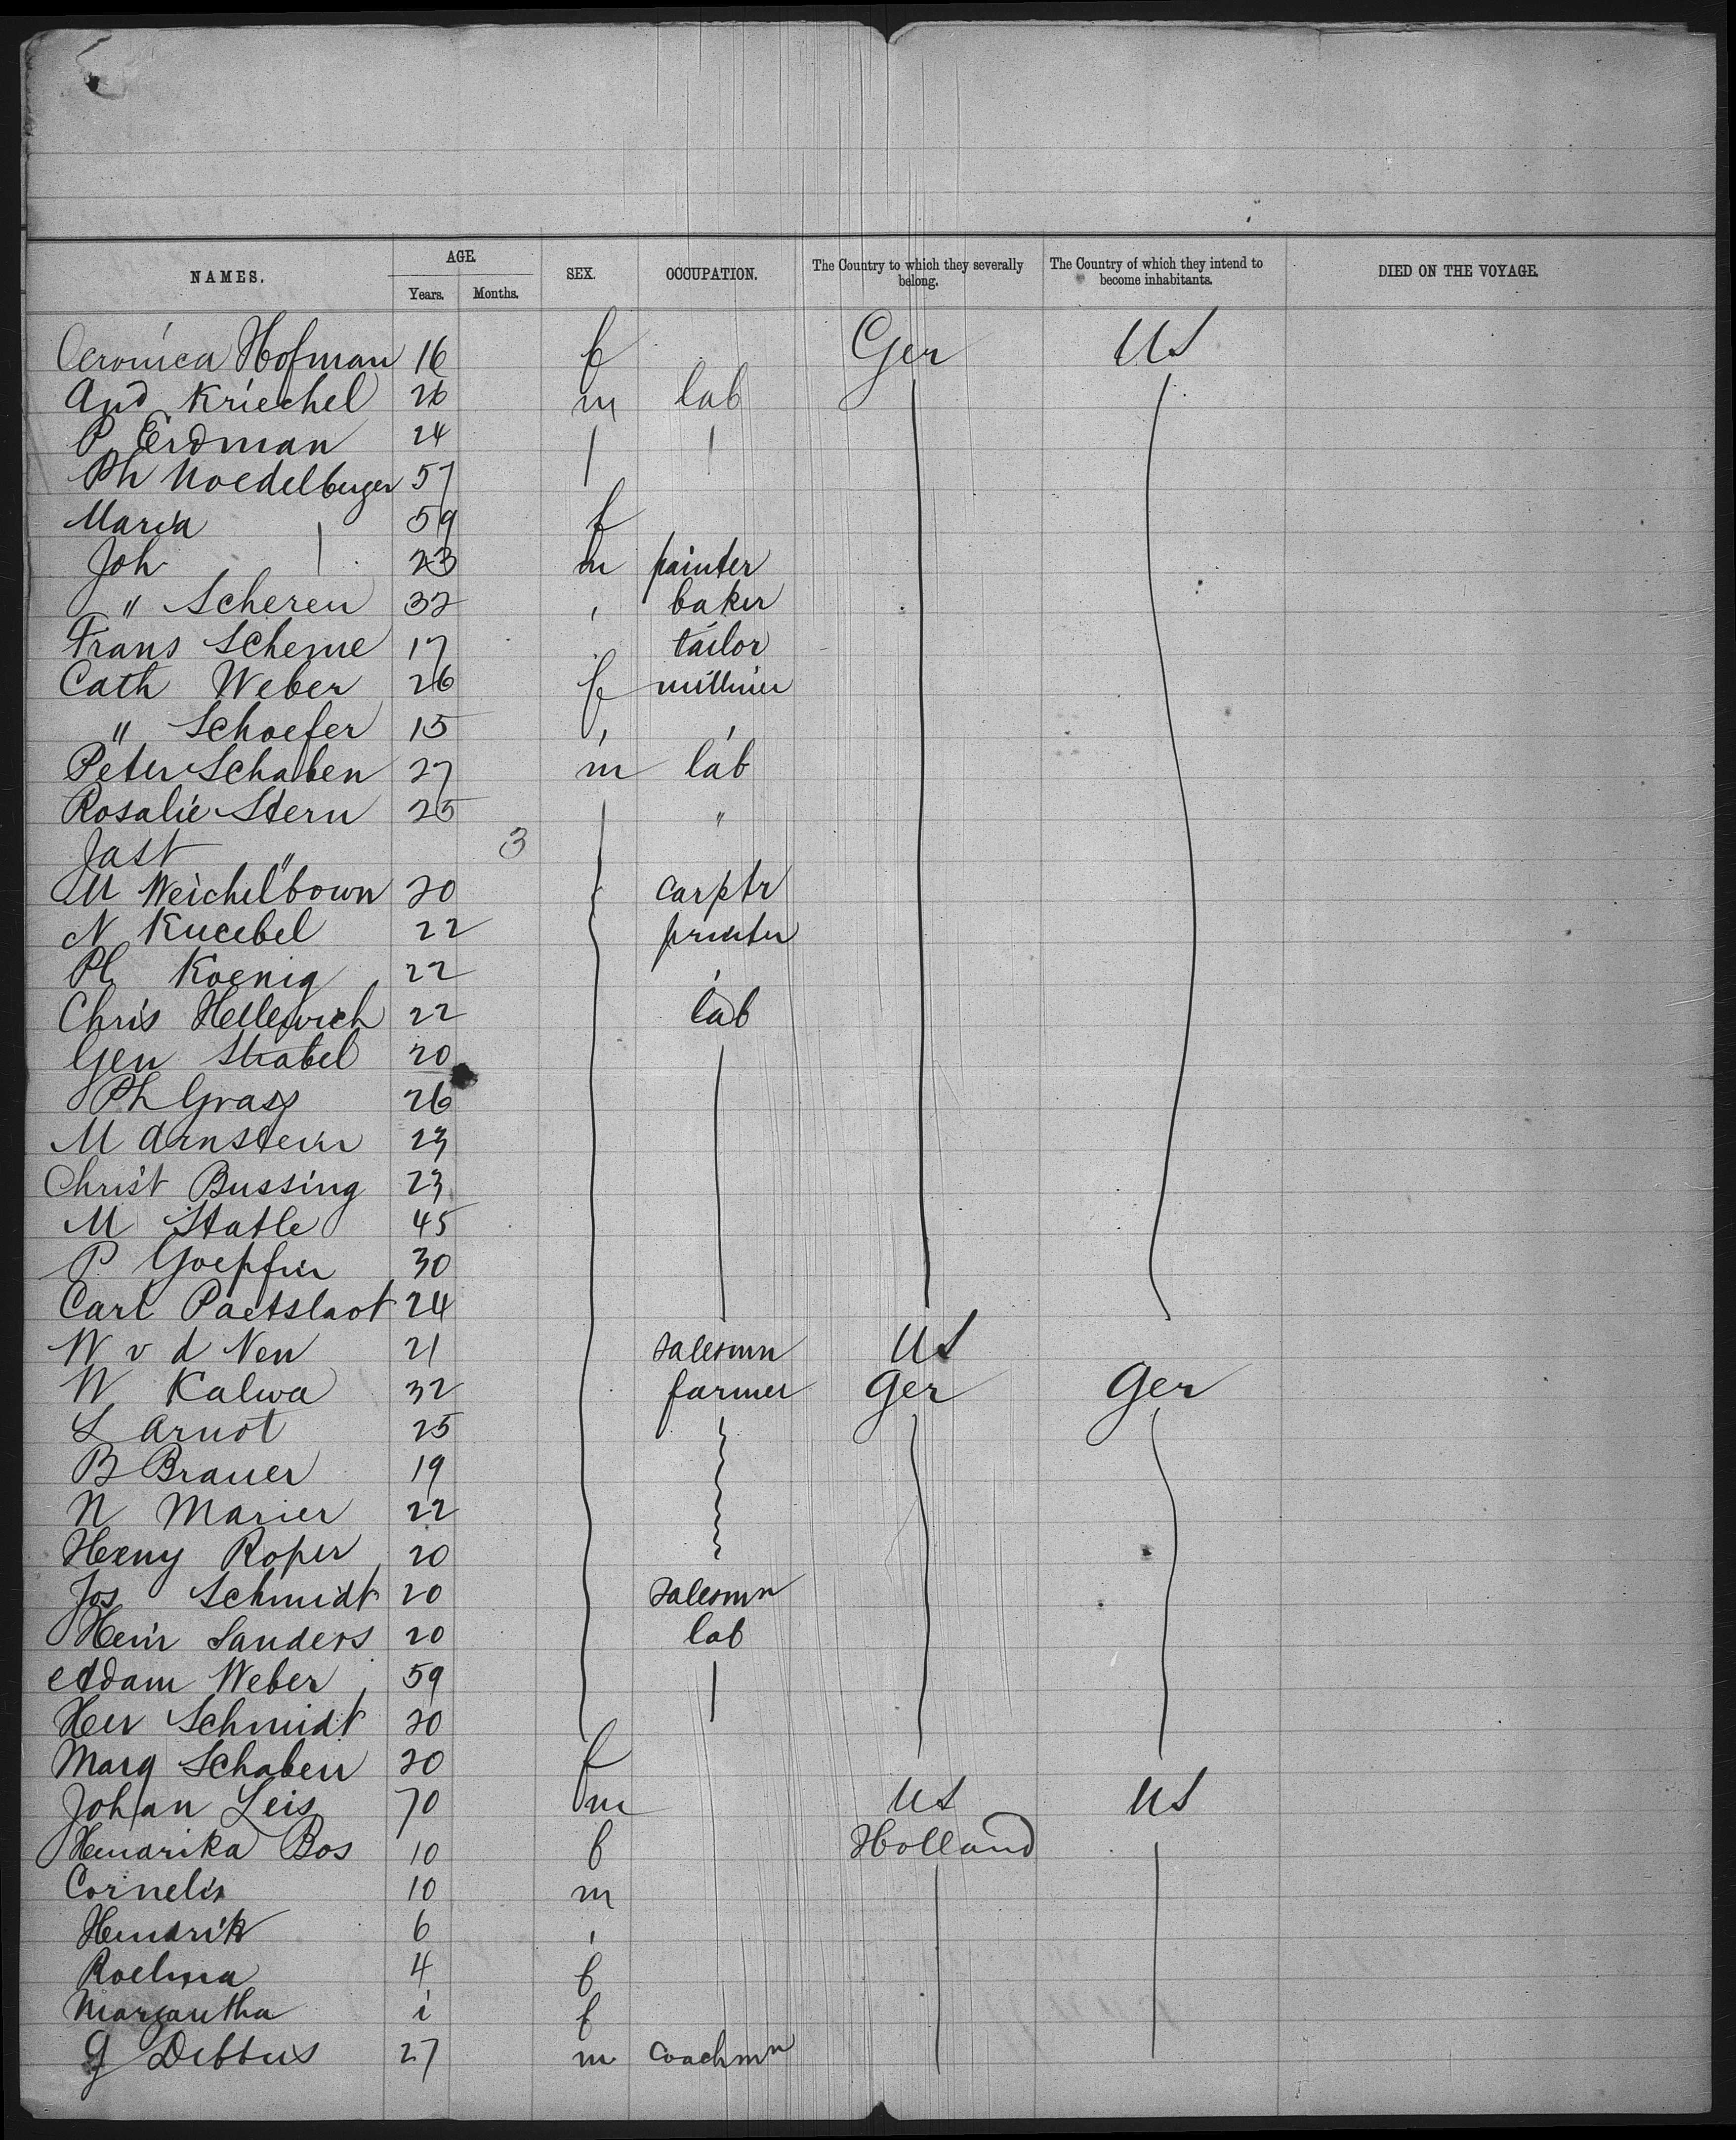 NAMES. AGE. SEX. OCCUPATION. The Country to which they severally belong. The Country of which they intend to become inhabitants. DIED ON THE VOYAGE.
Years. Months.
Veronica Hofman 16 f Ger US
And Kriechel 26 m lab
P Erdman 24
Ph Noedelberger 57
Maria 59 f
Joh 23 m painter
" Scheren 32 baker
Frans Scheme 17 tailor
Cath Weber 26 f milliner
" Schoefer 15
Peter Schaben 27 m lab
Rosalie Stern 25 "
Jast " 3
M Weichelbown 20 carptr
N Kucebel 22 printer
Ph Koenig 22
Chris Hellewich 22 lab
Gen Strabel 20
Ph Grass 26
M Arnstein 23
Christ Bussing 23
M Statle 45
P Goepfer 30
Carl Paetslaot 24
W v d Nen 21 salesmn US
W Kalwa 32 farmer Ger Ger
L Arnot 25
B Brauer 19
N Marier 22
Henny Roper 20
Jos Schmidt 20 salesmn
Hein Sanders 20 lab
Adam Weber 59
Her Schmidt 20
Marg Schaben 20 f
Johan Leis 70 m US US
Hendrika Bos 10 f Holland
Cornelis 10 m
Hendrik 6
Roelina 4 f
Margantha i f
G Debbus 27 m coachmn